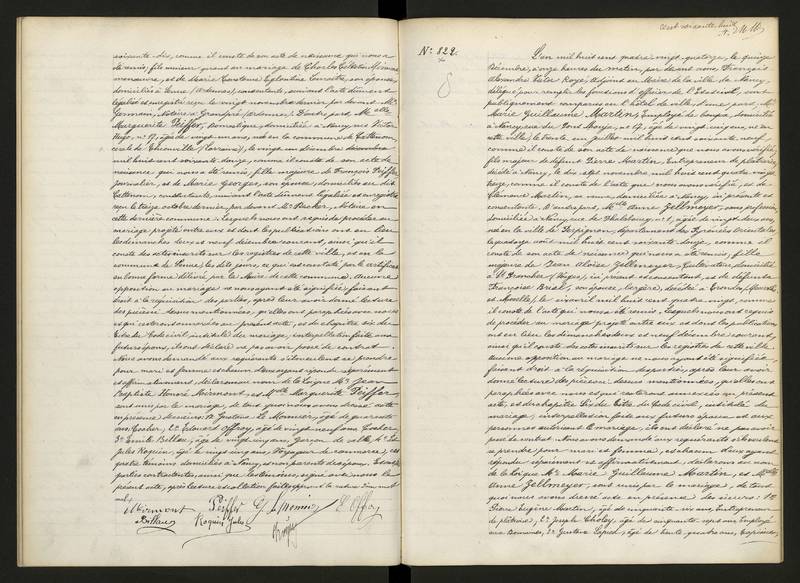 soixante-dix, comme il conste de son acte de naissance qui nous a
été remis, fils mineur quant au mariage de Charles Célestin Mirmont
manœuvre, et de Marie
domiciliés à Senuc (Ardennes), consentants, suivant l'acte dûment
légalisé et enregistré reçu le vingt novembre dernier par devant Me
Germain, Notaire à Grandpré (Ardennes). D'autre part, Melle
Marguerite Peiffer, domestique, domiciliée à Nancy, rue Victor
Hugo, no 17, âgée de vingt-un ans, née en la commune de Cattenom,
cercle de Thionville (Lorraine), le vingt-un décembre
mil huit cent soixante douze, comme il conste de son acte de
naissance qui nous a été remis, fille majeure de François Peiffer
journalier, et de Marie Georges, son épouse, domiciliés au dit
Cattenom, consentants, suivant l'acte dûment légalisé et enregistré
reçu le treize octobre dernier par devant Me Notaire en
cette dernière commune. Lesquels nous ont requis de procéder au
mariage projeté entre eux et dont les publications ont eu lieu
les dimanches deux et neuf décembre courant, ainsi qu'il
conste des actes inscrits sur les registres de cette ville, et en la
commune de Senuc, les dits jours, ce qui est constaté par le certificat
en bonne forme délivré par le Maire de cette commune. Aucune
opposition au mariage ne nous ayant été signifiée, faisant
droit à la réquisition des parties, après leur avoir donné lecture
des pièces dessus mentionnées, qu'elles ont paraphées avec nous
et qui resteront annexées au présent acte, et du chapitre six du
titre du Code civil, intitulé du mariage, interpellation faite aux
futurs époux, ils ont déclaré ne pas avoir passé de contrat.
Nous avons demandé aux requérants s'ils veulent se prendre
pour mari et femme et chacun d'eux ayant répondu séparément
et affirmativement, déclarons au nom de la loi que Mr Jean
Baptiste Honoré Mirmont, et Melle Marguerite Peiffer
sont unis par le mariage, de tout quoi nous avons dressé acte
en présence des sieurs: 1o Gustave Le Monnier, âgé de quarante
ans, Cocher, 2o Edouard Offroy, âgé de vingt-neuf ans, Cocher,
3o Emile Billau, âgé de vingt-cinq ans, garçon de salle, 4o et
Jules Roquin, âgé de vingt-cinq ans, Voyageur de commerce, ces
quatre témoins domiciliés à Nancy, et non parents des époux. Et les
parties contractantes, ainsi que les témoins, signé avec nous le
présent acte, après lecture et collation faite,
Mirmont Peiffer G. Le Monnier E. Offroy
Billau Roquin Jules
cent soixante huit
No 829.
L'an mil huit cent quatre vingt-quatorze, le quinze
Décembre, à onze heures du matin, par devant nous François
Alexandre Victor Roye, Adjoint au Maire de la ville de Nancy,
délégué pour remplir les fonctions d'officier de l'Etat civil, sont
publiquement comparus en l'hôtel de ville, d'une part, Mr
Marie Guillaume Martin, Employé de banque, domicilié
à Nancy, rue du Pont Mouja, no 17, âgé de vingt-cinq ans, né en
cette ville, le trente juillet mil huit cent soixante neuf,
comme il conste de son acte de naissance que nous avons vérifié,
fils majeur de défunt Pierre Martin, Entrepreneur de plâtrerie,
décédé à Nancy, le dix sept novembre mil huit cent quatre vingt
treize, comme il conste de l'acte que nous avons vérifié, et de
Clémence Martin, sa veuve, domiciliée à Nancy, ici présente et
consentante. D'autre part, Melle Anne Zellmeyer, sans profession,
domiciliée à Nancy, rue de Phalsbourg, no 1, âgée de vingt-deux ans,
née en la ville de Perpignan, département des Pyrénées Orientales
le quatorze août mil huit cent soixante douze, comme il
conste de son acte de naissance qui nous a été remis, fille
majeure de Jean Aloïse Zellmeyer, Cultivateur, domicilié
à (Vosges), ici présent et consentant, et de défunte
Françoise son épouse, lingère, décédée à (Meurthe
et Moselle), le six avril mil huit cent quatre vingt, comme
il conste de l'acte qui nous a été remis. Lesquels nous ont requis
de procéder au mariage projeté entre eux et dont les publications
ont eu lieu les dimanches deux et neuf décembre courant,
ainsi qu'il conste des actes inscrits sur les registres de cette ville.
Aucune opposition au mariage ne nous ayant été signifiée,
faisant droit à la réquisition des parties, après leur avoir
donné lecture des pièces dessus mentionnées, qu'elles ont
paraphées avec nous et qui resteront annexées au présent
acte, et du chapitre six du titre du Code civil, intitulé du
mariage, interpellation faite aux futurs époux et aux
personnes autorisant le mariage, ils ont déclaré ne pas avoir
passé de contrat. Nous avons demandé aux requérants s'ils veulent
se prendre pour mari et femme, et chacun d'eux ayant
répondu séparément et affirmativement, déclarons au nom
de la loi que Mr Marie Guillaume Martin, et Melle
Anne Zellmeyer, sont unis par le mariage, de tout
quoi nous avons dressé acte en présence des sieurs: 1o
Pierre Eugène Martin, âgé de vingt six ans, Entrepreneur
de plâtrerie, 2o Joseph Choley, âgé de cinquante sept ans, Employé
aux Domaines, 3o Gustave âgé de trente quatre ans, Tapissier,